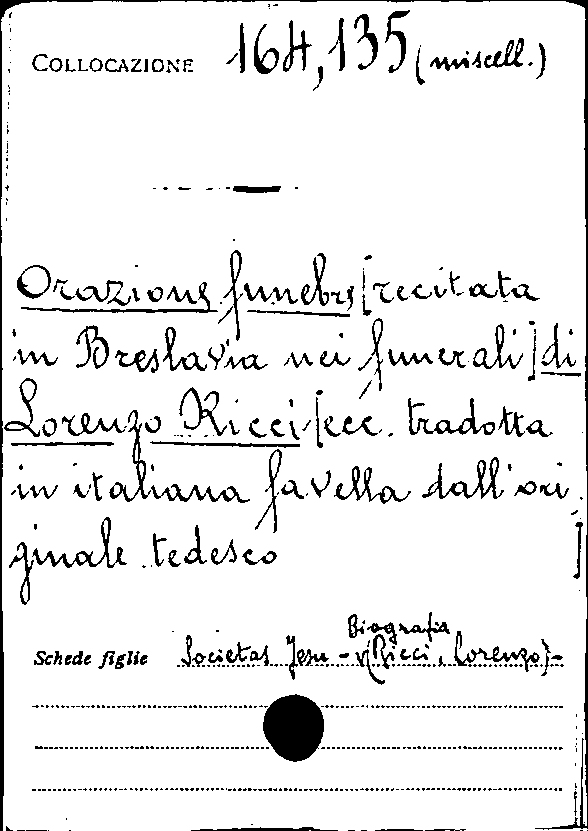 COLLOCAZIONE 164,135 (miscell.)
Orazione funebre [recitata
in Breslavia nei funerali] di
Lorenzo Ricci [ecc. tradotta
in italiana favella dall'ori
ginale tedesco ]
Biografia
Schede figlie Societas Jesu - (Ricci, Lorenzo) -